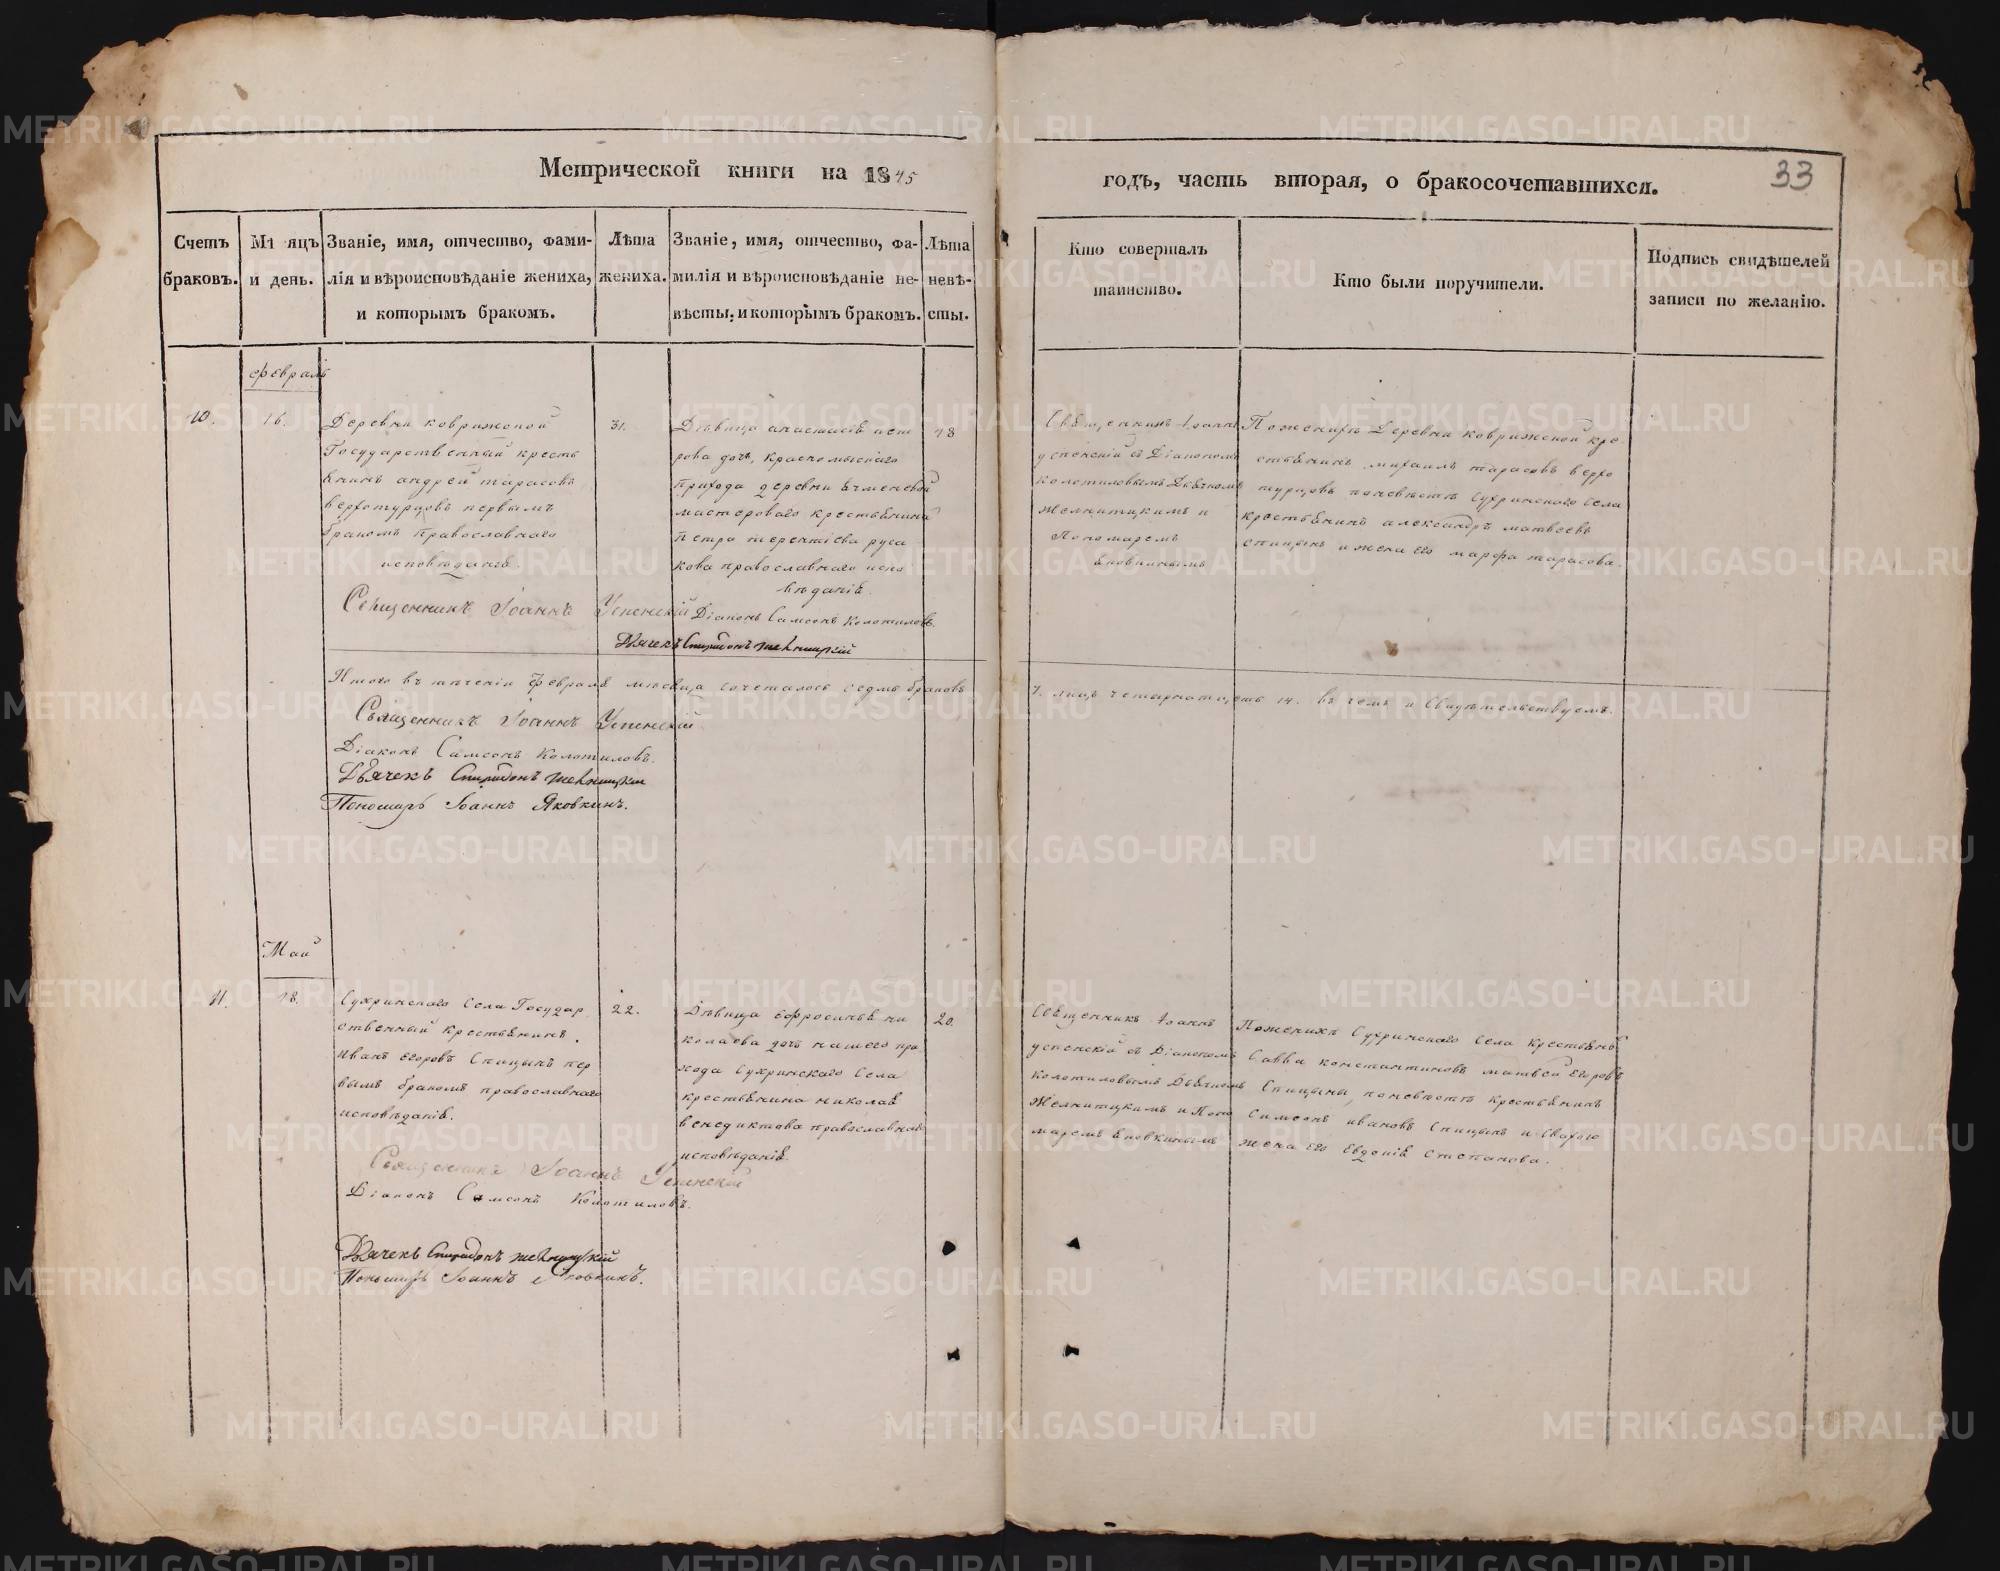 Метрической книги на 1845
годъ, часть вторая, о бракосочетавшихся.
33
Счетъ браковъ.
Мѣ яцъ и день.
Званіе, имя, отчество, фами-
лія и вѣроисповѣданіе жениха,
и которымъ бракомъ.
Лѣта
жениха.
Званіе, имя, отчество, фа-
милія и вѣроисповѣданіе не-
вѣсты; и которымъ бракомъ.
Лѣта
невѣ-
сты.
Кто совершалъ
таинство.
Кто были поручители.
Подпись свидѣтелей
записи по желанію.
Февраль
10.
16.
Деревни коврижоной
Государственный кресть
янинъ андрей тарасовъ
верхотурцовъ первымъ
бракомъ православнаго
исповѣданія.
31.
Дѣвица анастасія пет
рова дочь, красномыскаго
прихода деревни ячменевой
мастероваго крестьянина
петра терентіева руса
кова православнаго испо
вѣданія.
18
Священникъ Іоаннъ
успенскій съ Діакономъ
колотиловымъ Дьячкомъ
желнитцкимъ и
Пономаремъ
яковкинымъ
Поженихѣ Деревни коврижоной кре
стьянинъ михаилъ тарасовъ верхо
турцовъ поневѣстѣ Сухринскаго Села
крестьянинъ александръ матвеевъ
спицынъ и жена его марфа тарасова.
Священникъ Іоаннъ Успенскій Діаконъ Самсонъ Колотиловъ.
Дьячекъ Спиридонъ желницкій
Итого въ теченіи Февраля мѣсяца сочеталось седмь браковъ
7. лицъ четырнатцеть 14. въ чемъ и Свидѣтельствуемъ.
Священникъ Іоаннъ Успенскій
Діаконъ Самсонъ Колотиловъ.
Дьячекъ Спиридонъ желницкій
Пономарь Іоаннъ Яковкинъ.
Май
11.
18.
Сухринскаго Села Государ
ственный крестьянинъ.
иванъ егоровъ Спицынъ пер
вымъ бракомъ православнаго
исповѣданія.
22.
Дѣвица ефросинья ни
колаева дочь нашего при
хода Сухринскаго Села
крестьянина николая
венедиктова православнаго
исповѣданія.
20.
Священникъ Іоаннъ
успенскій съ Діакономъ
колотиловымъ Дьячкомъ
желнитцкимъ и Поно
маремъ яковкинымъ
Поженихѣ Сухринскаго Села крестьяне
Савва константиновъ матвей егоровъ
Спицыны, поневѣстѣ крестьянинъ
Симеонъ ивановъ Спицынъ и Свахою
жена его Евдокія Стспанова.
Священникъ Іоаннъ Успенскій
Діаконъ Самсонъ Колотиловъ.
Дьячекъ Спиридонъ желницкій
Пономарь Іоаннъ Яковкинъ.
METRIKI.GASO-URAL.RU